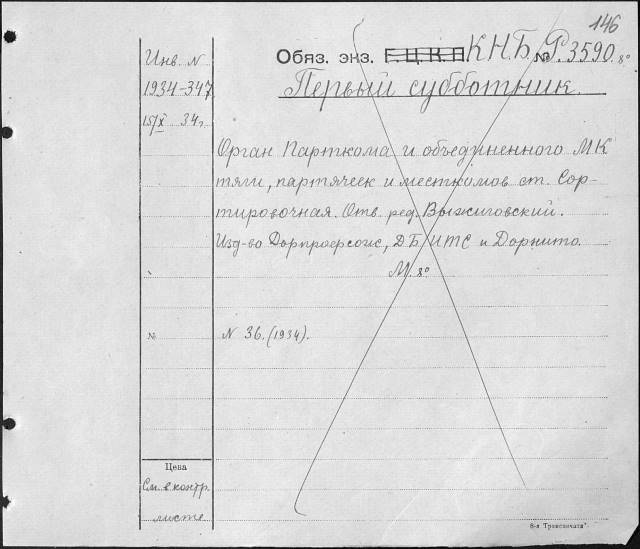 146
Инв. N
1934-347
15/X 34г.
Обяз. экз. Г.Ц.К.П. КНБ. № Р 3590. 8°
Первый субботник.
Орган Парткома и объединенного МК
тяги, партячеек и месткомов ст. Сор-
тировочная. Отв. ред. Выжиговский.
Изд-во Дорпрофсож, ДБ ИТС и Дорнито.
М. 8°
№ N 36. (1934).
Цена
См. в контр.
листе